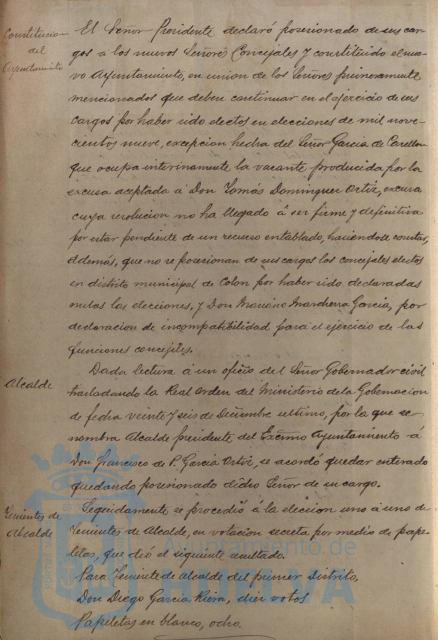 Constitucion
del
Ayuntamiento
El Señor Presidente declaró posesionado de sus car-
gos a los nuevos Señores Concejales y constituido el nue-
vo Ayuntamiento, en union de los Señores primeramente
mencionados que deben continuar en el ejercicio de sus
cargos por haber sido electos en elecciones de mil nove-
cientos nueve, excepcion hecha del Señor Garcia de
que ocupa interinamente la vacante producida por la
excusa aceptada á Don Tomás Dominguez Ortiz, excusa
cuya resolucion no ha llegado á ser firme y definitiva
por estar pendiente de un recurso entablado, haciendose constar,
además, que no se posesionan de sus cargos los concejales electos
en distrito municipal de Colon por haber sido declaradas
nulas las elecciones, y Don Marchena Garcia, por
declaracion de incompatibilidad para el ejercicio de las
funciones concejiles.
Alcalde
Dada lectura á un oficio del Señor Gobernador civil
trasladando la Real Orden del Ministerio de la Gobernacion
de fecha veinte y seis de Diciembre ultimo, por la que se
nombra Alcalde presidente del Excmo Ayuntamiento á
Don Francisco de P. Garcia Ortiz, se acordó quedar enterado
quedando posesionado dicho Señor de su cargo.
Tenientes de
Alcalde
Seguidamente se procedió á la eleccion uno á uno de
Tenientes de Alcalde, en votacion secreta por medio de pape-
letas, que dió el siguiente resultado.
Para Teniente de alcalde del primer distrito,
Don Diego Garcia Riera, diez votos
Papeletas en blanco, ocho.
Ayuntamiento de